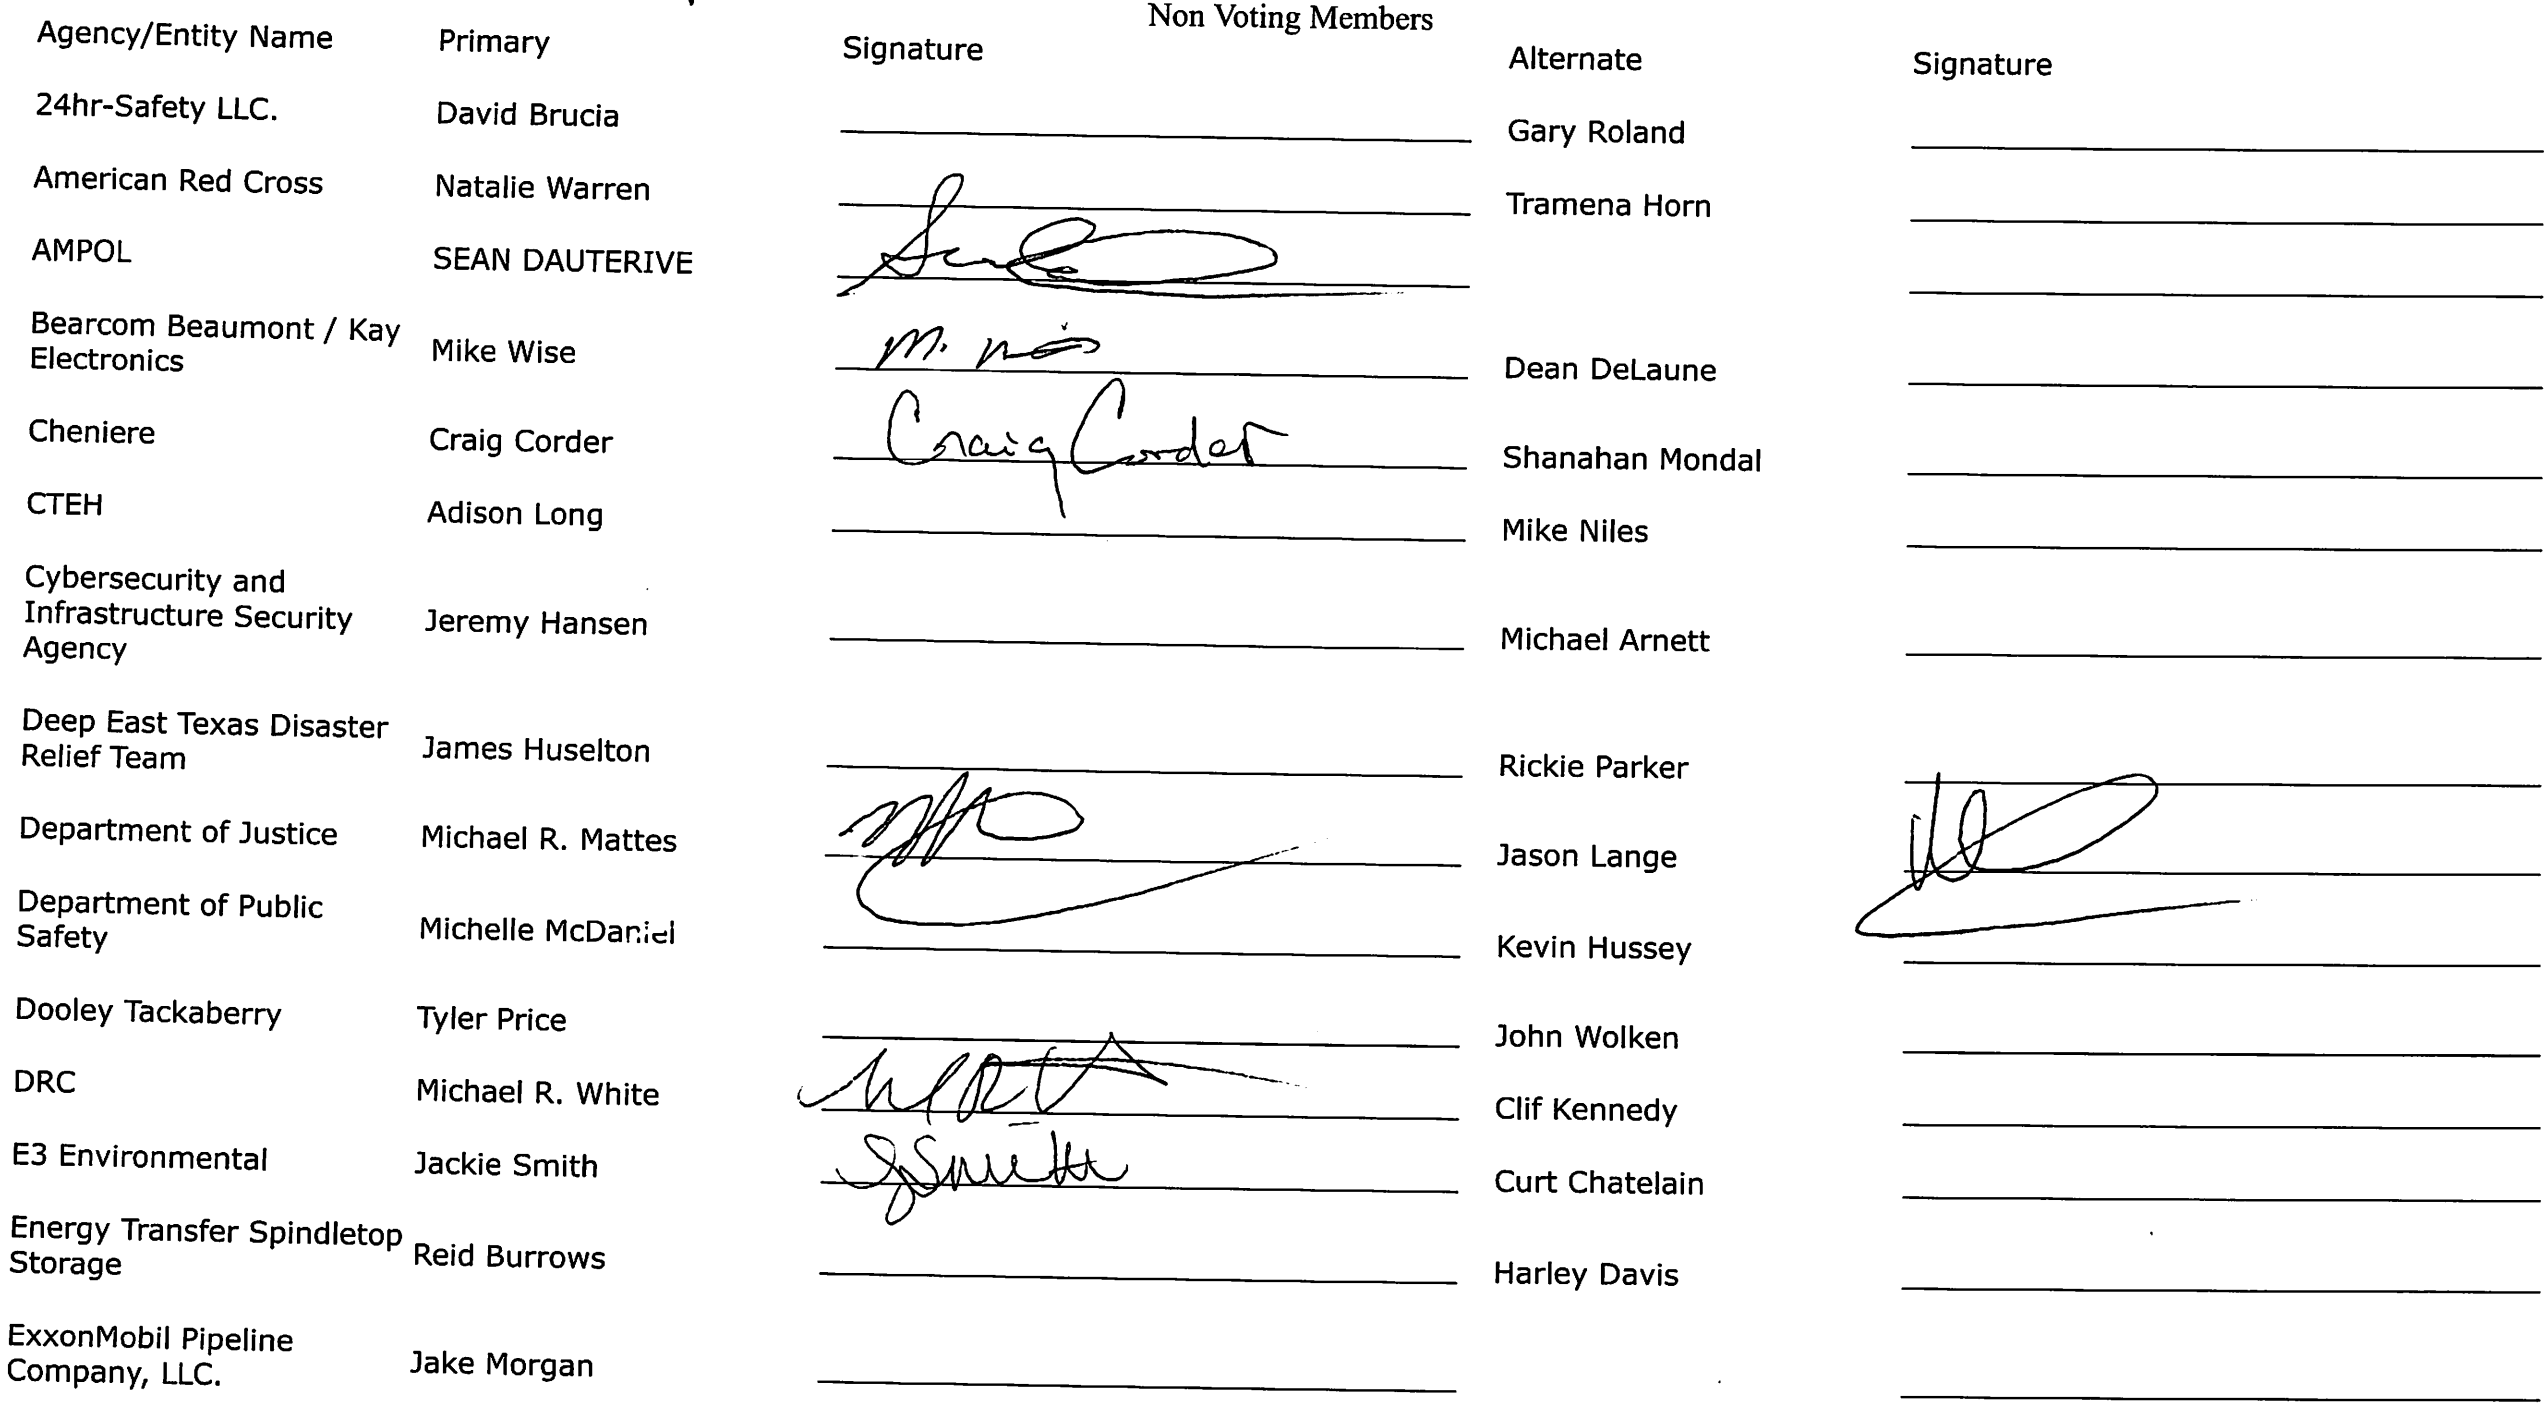 Non Voting Members
Agency/Entity Name Primary Signature Alternate Signature
24hr-Safety LLC. David Brucia Gary Roland
American Red Cross Natalie Warren Tramena Horn
AMPOL SEAN DAUTERIVE
Bearcom Beaumont / Kay
Electronics Mike Wise M. Dean DeLaune
Cheniere Craig Corder Craig Corder Shanahan Mondal
CTEH Adison Long Mike Niles
Cybersecurity and
Infrastructure Security
Agency Jeremy Hansen Michael Arnett
Deep East Texas Disaster
Relief Team James Huselton Rickie Parker
Department of Justice Michael R. Mattes Jason Lange
Department of Public
Safety Michelle McDaniel Kevin Hussey
Dooley Tackaberry Tyler Price John Wolken
DRC Michael R. White Clif Kennedy
E3 Environmental Jackie Smith J Smith Curt Chatelain
Energy Transfer Spindletop
Storage Reid Burrows Harley Davis
ExxonMobil Pipeline
Company, LLC. Jake Morgan